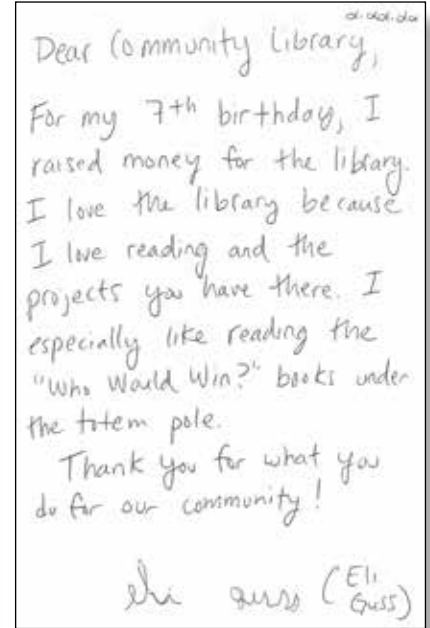 Dear Community Library,
For my 7th birthday, I
raised money for the library.
I love the library because
I love reading and the
projects you have there. I
especially like reading the
"Who Would Win?" books under
the totem pole.
Thank you for what you
do for our community!
eli guss (Eli
Guss)